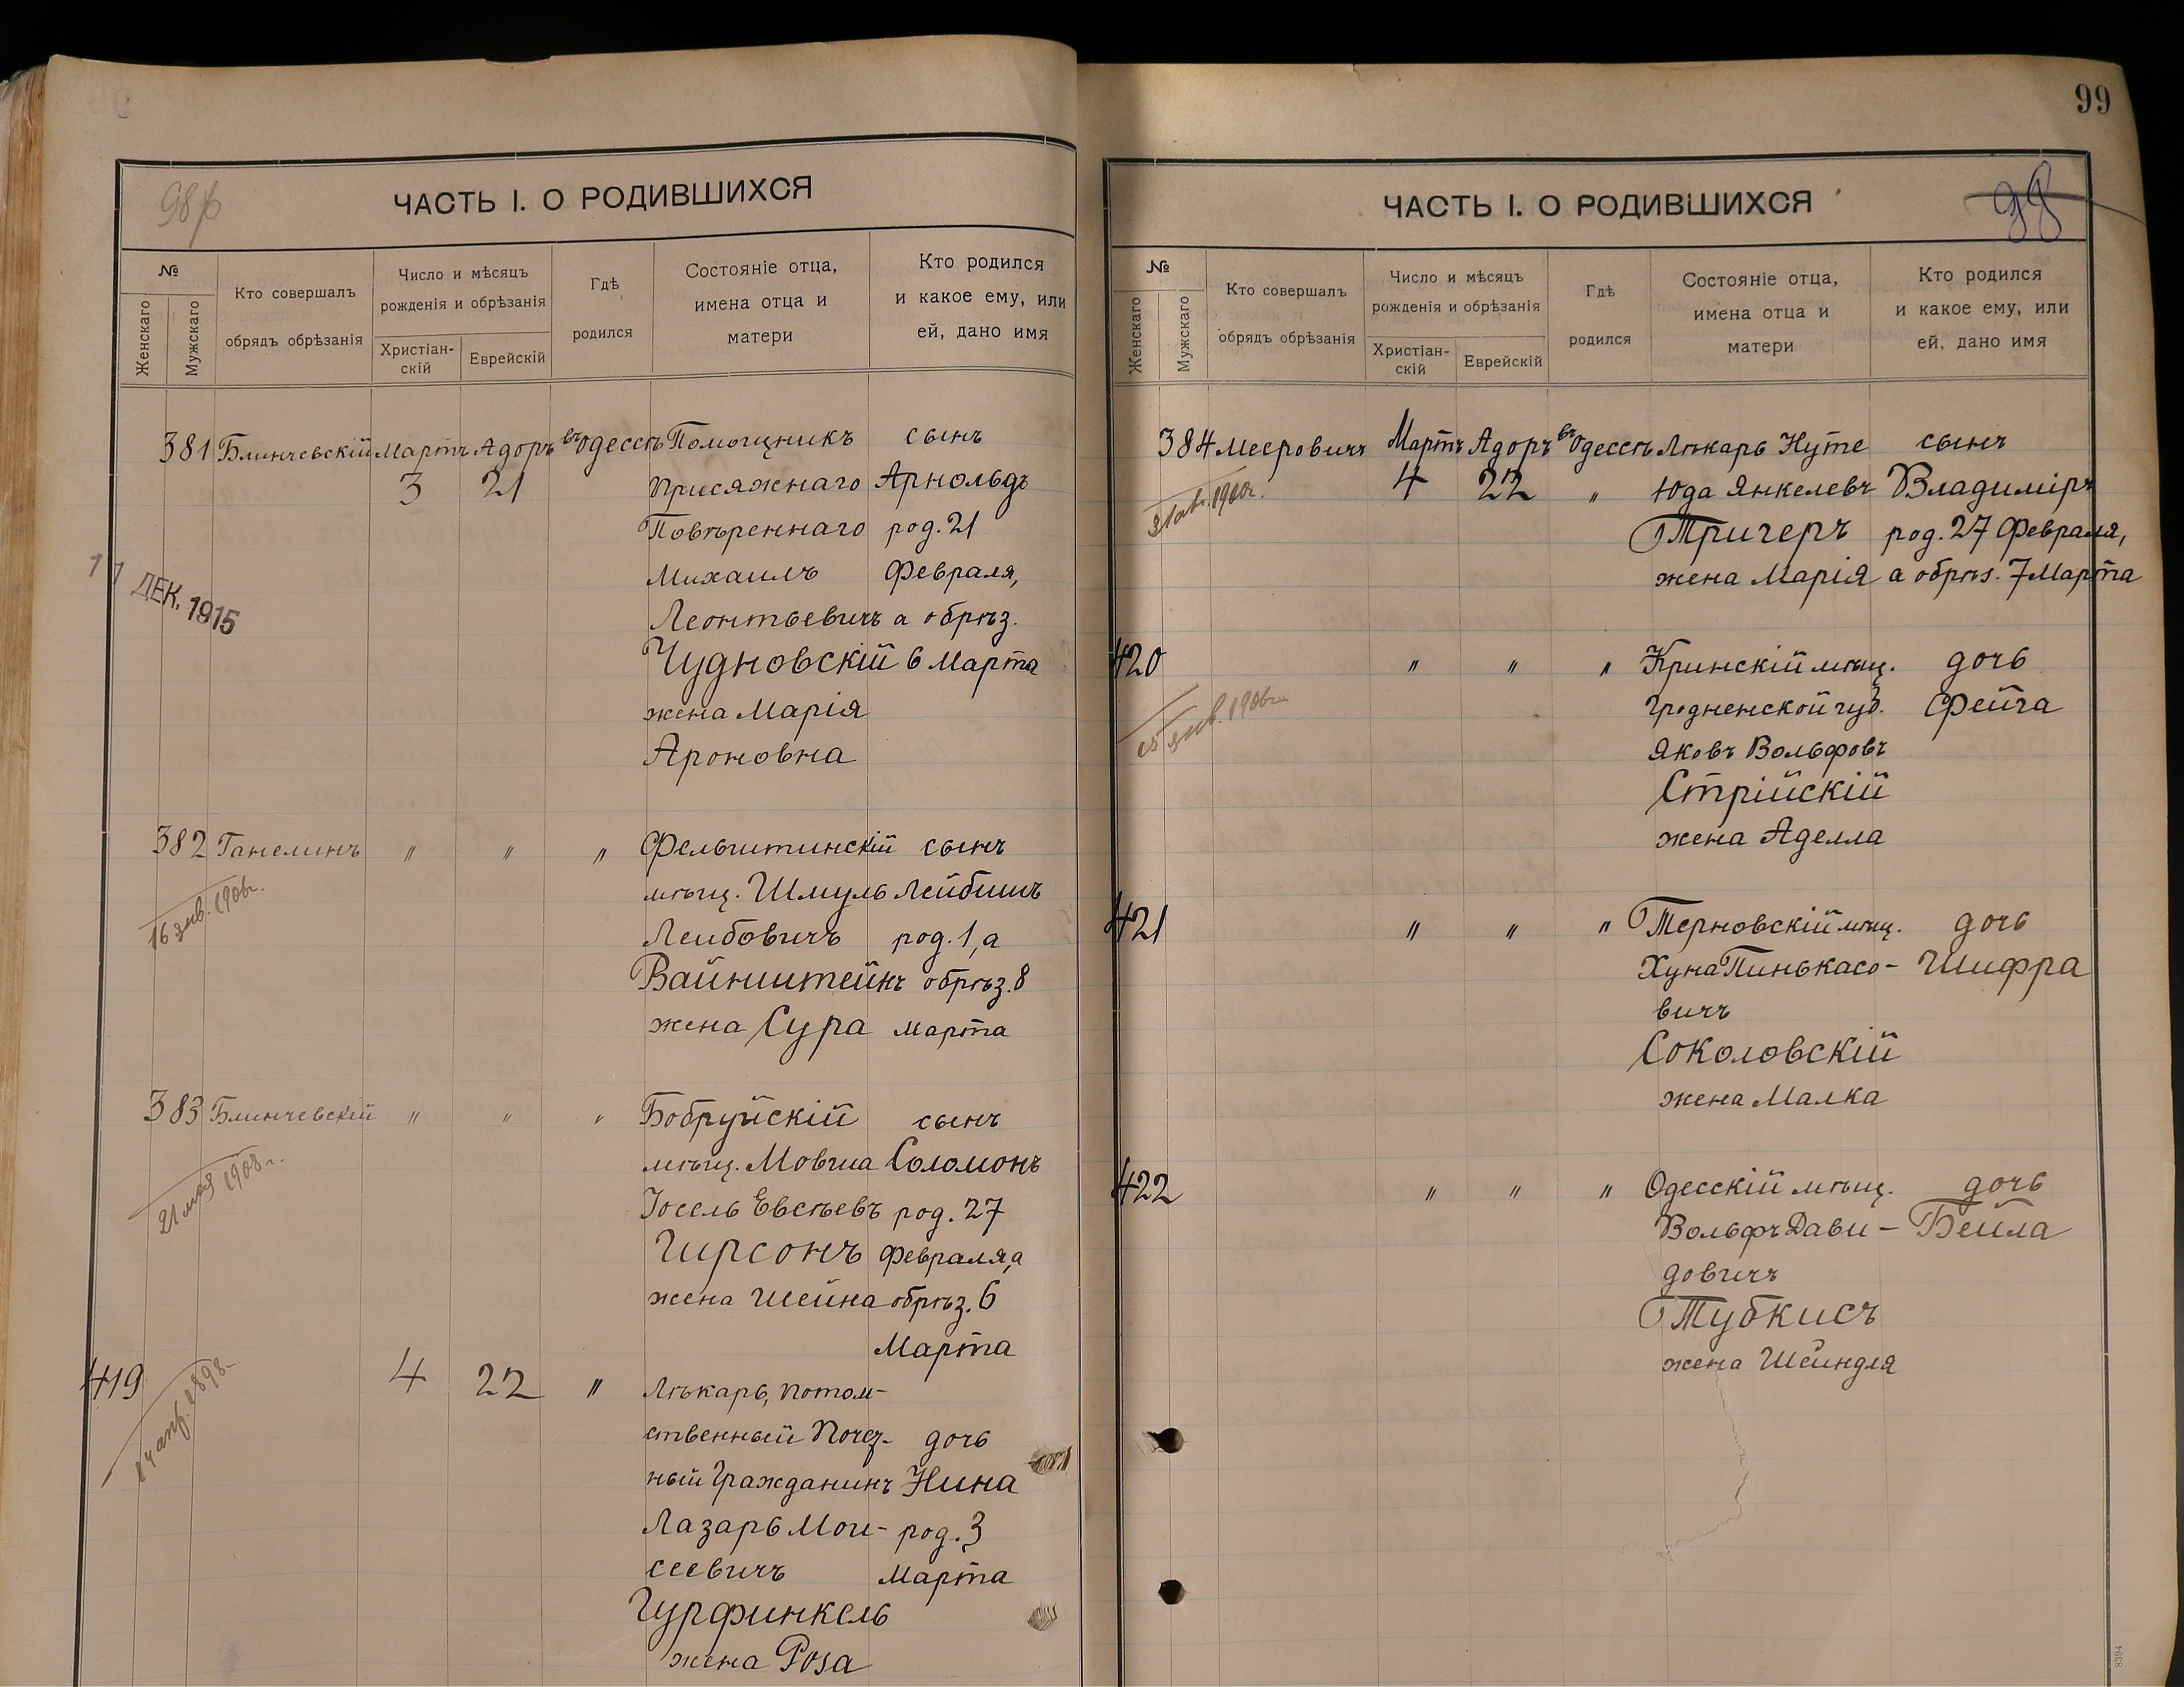 98 об
ЧАСТЬ I. О РОДИВШИХСЯ
№
Женскаго
Мужскаго
Кто совершалъ
обрядъ обрѣзанія
Число и мѣсяцъ
рожденія и обрѣзанія
Христіан-
скій
Еврейскій
Гдѣ
родился
Состояніе отца,
имена отца и
матери
Кто родился
и какое ему, или
ей, дано имя
381 Блинчевскій Мартъ Адоръ въ Одессѣ Помощникъ сынъ
3 21 Присяжнаго Арнольдъ
Повѣреннаго род. 21
Михаилъ Февраля,
Леонтьевичъ а обрѣз.
Чудновскій 6 Марта
жена Марія
Ароновна
17 ДЕК. 1915
382 Ганелинъ " " " Фельштинскій сынъ
мѣщ. Шмуль Лейбишъ
Лейбовичъ род. 1, а
Вайнштейнъ обрѣз. 8
жена Сура марта
16 янв. 1906г.
383 Блинчевскій " " " Бобруйскій сынъ
мѣщ. Мовша Соломонъ
Іосель Евсѣевъ род. 27
Гирсонъ февраля, а
жена Шейна обрѣз. 6
Марта
21 мая 1908г.
419 4 22 " Лѣкарь, потом-
ственный Почет-дочь
ный Гражданинъ Нина
Лазарь Мои- род. 3
сеевичъ Марта
Гурфинкель
жена Роза
14 апр. 1898
99
98
ЧАСТЬ I. О РОДИВШИХСЯ
№
Женскаго
Мужскаго
Кто совершалъ
обрядъ обрѣзанія
Число и мѣсяцъ
рожденія и обрѣзанія
Христіан-
скій
Еврейскій
Гдѣ
родился
Состояніе отца,
имена отца и
матери
Кто родился
и какое ему, или
ей, дано имя
384 Мееровичъ Мартъ Адоръ въ Одессѣ Лѣкарь Нуте сынъ
4 22 " Юда Янкелевъ Владиміръ
Тричеръ род. 27 Февраля,
жена Марія а обрѣз. 7 Марта
420 " " " Кринскій мѣщ. дочь
Гродненской губ. Фейга
Яковъ Вольфовъ
Стрійскій
жена Аделла
янв. 1906г
421 " " " Терновскій мѣщ. дочь
Хуна Пинькасо- Шифра
вичъ
Соколовскій
жена Малка
422 " " " Одесскій мѣщ. дочь
Вольфъ Дави- Бейла
довичъ
Тубкисъ
жена Шейндля
8394